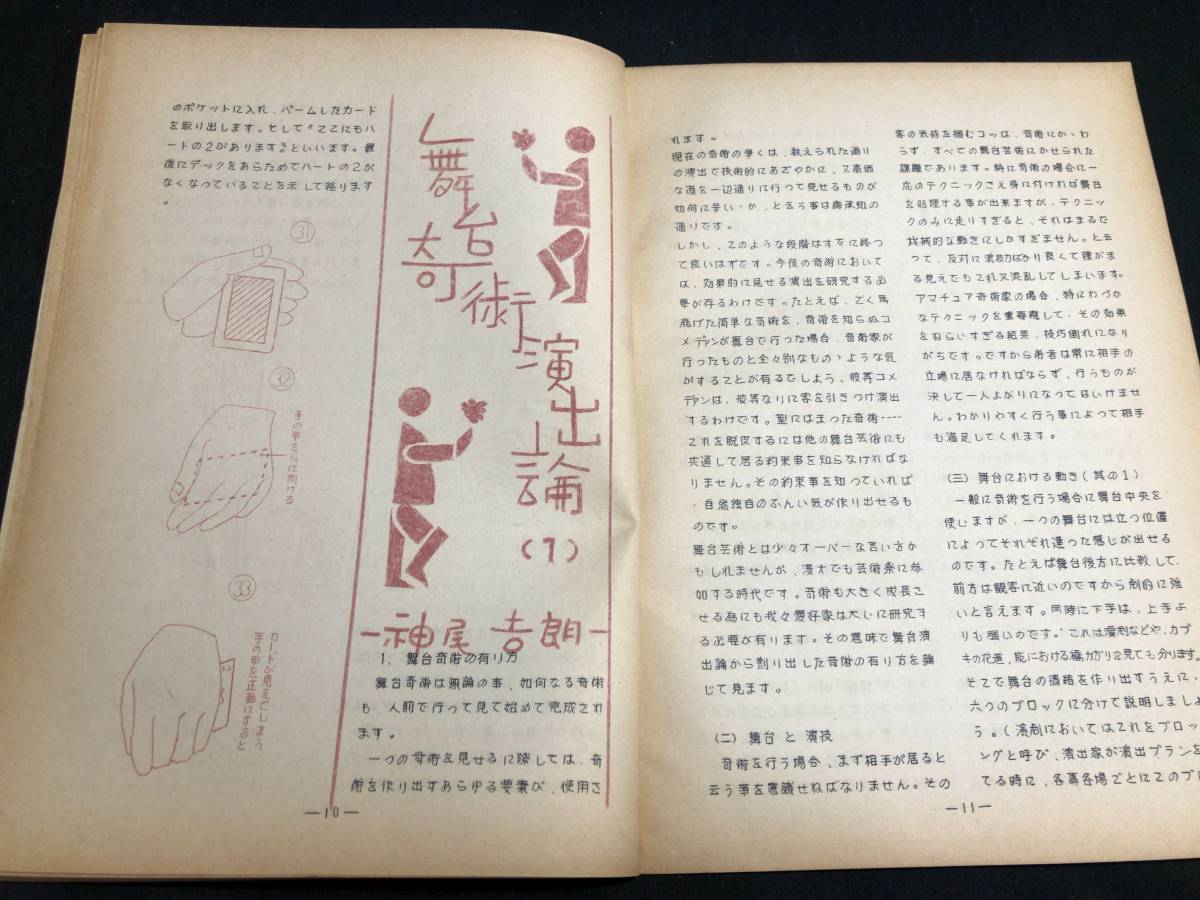 のポケットに入れ、パームしたカード
を取り出します。そして〝ここにもハ
ートの2があります〟といいます。最
後にデックをあらためてハートの2が
なくなっていることを示して終ります
。
31
32
手の甲を
に向ける
33
カードが見えてしまう
手の甲を正面にすると
舞台
奇術
演出
論
(1)
―神尾 吉朗―
1. 舞台奇術の有り方
舞台奇術は無論の事、如何なる奇術
も、人前で行って見て始めて完成され
ます。
一つの奇術を見せるに際しては、奇
術を作り出すあらゆる要素が、使用さ
―10―
れます。
現在の奇術の多くは、教えられた通り
の演出で技術的にあざやかに、又高価
な道を一辺通りに行って見せるものが
如何に多いか、と云う事は御承知の
通りです。
しかし、このような段階はすでに終っ
て良いはずです。今後の奇術において
は、効果的に見せる演出を研究する必
要が存るわけです。たとえば、ごく馬
鹿げた簡単な奇術を、奇術を知らぬコ
メデアンが舞台で行った場合、奇術家が
行ったものと全々別なものゝような気
がすることが有るでしよう、彼等コメ
デアンは、彼等なりに客を引きつけ演出
するわけです。型にはまった奇術----
これを脱皮するには他の舞台芸術にも
共通して居る約束事を知らなければな
りません。その約束事を知っていれば
、自然独自のふんい気が作り出せるも
のです。
舞台芸術とは少々オーバーな言い方か
もしれませんが、漫才でも芸術祭に参
加する時代です。奇術も大きく成長さ
せる為にも我々愛好家は大いに研究す
る必要が有ります。その意味で舞台演
出論から割り出した奇術の有り方を論
じて見ます。
(二) 舞台と演技
奇術を行う場合、まず相手が居ると
云う事を意識せねばなりません。その
客の気持を掴むコツは、奇術にかゝわ
らず、すべての舞台芸術にかせられた
課題であります。特に奇術の場合に一
応のテクニックさえ身に付ければ舞台
を処理する事が出来ますが、テクニッ
クのみに走りすぎると、それはまるで
機械的な動きにしかすぎません。と云
って、反対に演技力ばかり良くて種がま
る見えでもこれ又混乱してしまいます。
アマチュア奇術家の場合、特にわづか
なテクニックを重要視して、その効果
をねらいすぎる結果、技巧倒れになり
がちです。ですから術者は常に相手の
立場に居なければならず、行うものが
決して一人よがりになってはいけませ
ん。わかりやすく行う事によって相手
も満足してくれます。
(三) 舞台における動き(其の1)
一般に奇術を行う場合に舞台中央を
使いますが、一つの舞台には立つ位置
によってそれぞれ違った感じが出せる
のです。たとえば舞台後方に比較して、
前方は観客に近いのですから劇的に強
いと言えます。同時に下手は、上手よ
りも強いのです。これは演劇などや、カブ
キの花道、能における橋がかりを見ても分ります。
そこで舞台の 粨を作り出すうえに、
六つのブロックに分けて説明しましょ
う。(演劇においてはこれをブロッ
ングと呼び、演出家が演出プランを
てる時に、各幕各場ごとにこのブロ
―11―